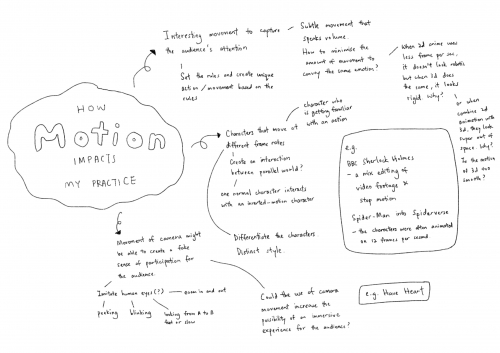 HOW
Motion
IMPACTS
MY PRACTICE
Interesting movement to capture
the audience's attention
Set the rules and create unique
action / movement based on the
rules
Subtle movement that
speaks volume.
How to minimise the
amount of movement to
convey the same emotion?
When 2d anime uses
less frame per sec,
it doesn't look robotic
but when 3d does
the same, it looks
rigid. why?
or when
combine 2d
animation with
3d, they look
super out of
space. Why?
Is the motion
of 3d too
smooth?
Characters that move at
different frame rates
character who
is getting familiar
with an action
Create an interaction
between parallel world?
one normal character interacts
with an inverted-motion character
Differentiate the characters
Distinct style.
e.g.
BBC Sherlock Holmes
- a mix editing of
video footage &
stop motion
Spider-Man into Spiderverse
- the characters were often animated
on 12 frames per second.
Movement of camera might
be able to create a fake
sense of participation for
the audience.
Imitate human eyes(?)
zoom in and out
peaking
blinking
looking from A to B
fast or slow
Could the use of camera
movement increase the
possibility of an immersive
experience for the audience?
e.g. Have Heart